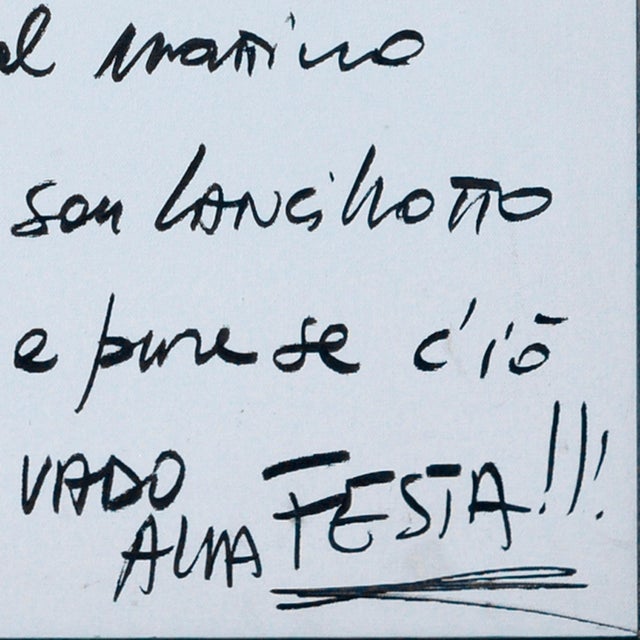 al mattino
son LANCiLLOTTO
e pure se c'iò
VADO
ALLA FESTA!!!